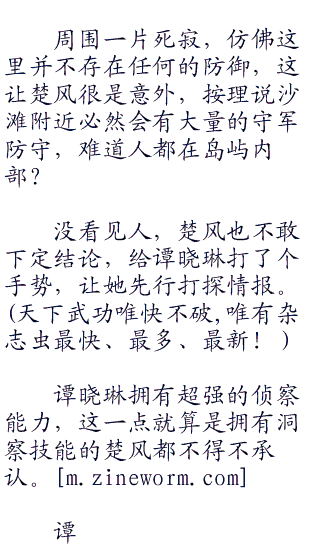 周围一片死寂，仿佛这
里并不存在任何的防御，这
让楚风很是意外，按理说沙
滩附近必然会有大量的守军
防守，难道人都在岛屿内
部？
没看见人，楚风也不敢
下定结论，给谭晓琳打了个
手势，让她先行打探情报。
(天下武功唯快不破,唯有杂
志虫最快、最多、最新！)
谭晓琳拥有超强的侦察
能力，这一点就算是拥有洞
察技能的楚风都不得不承
认。[m.zineworm.com]
谭